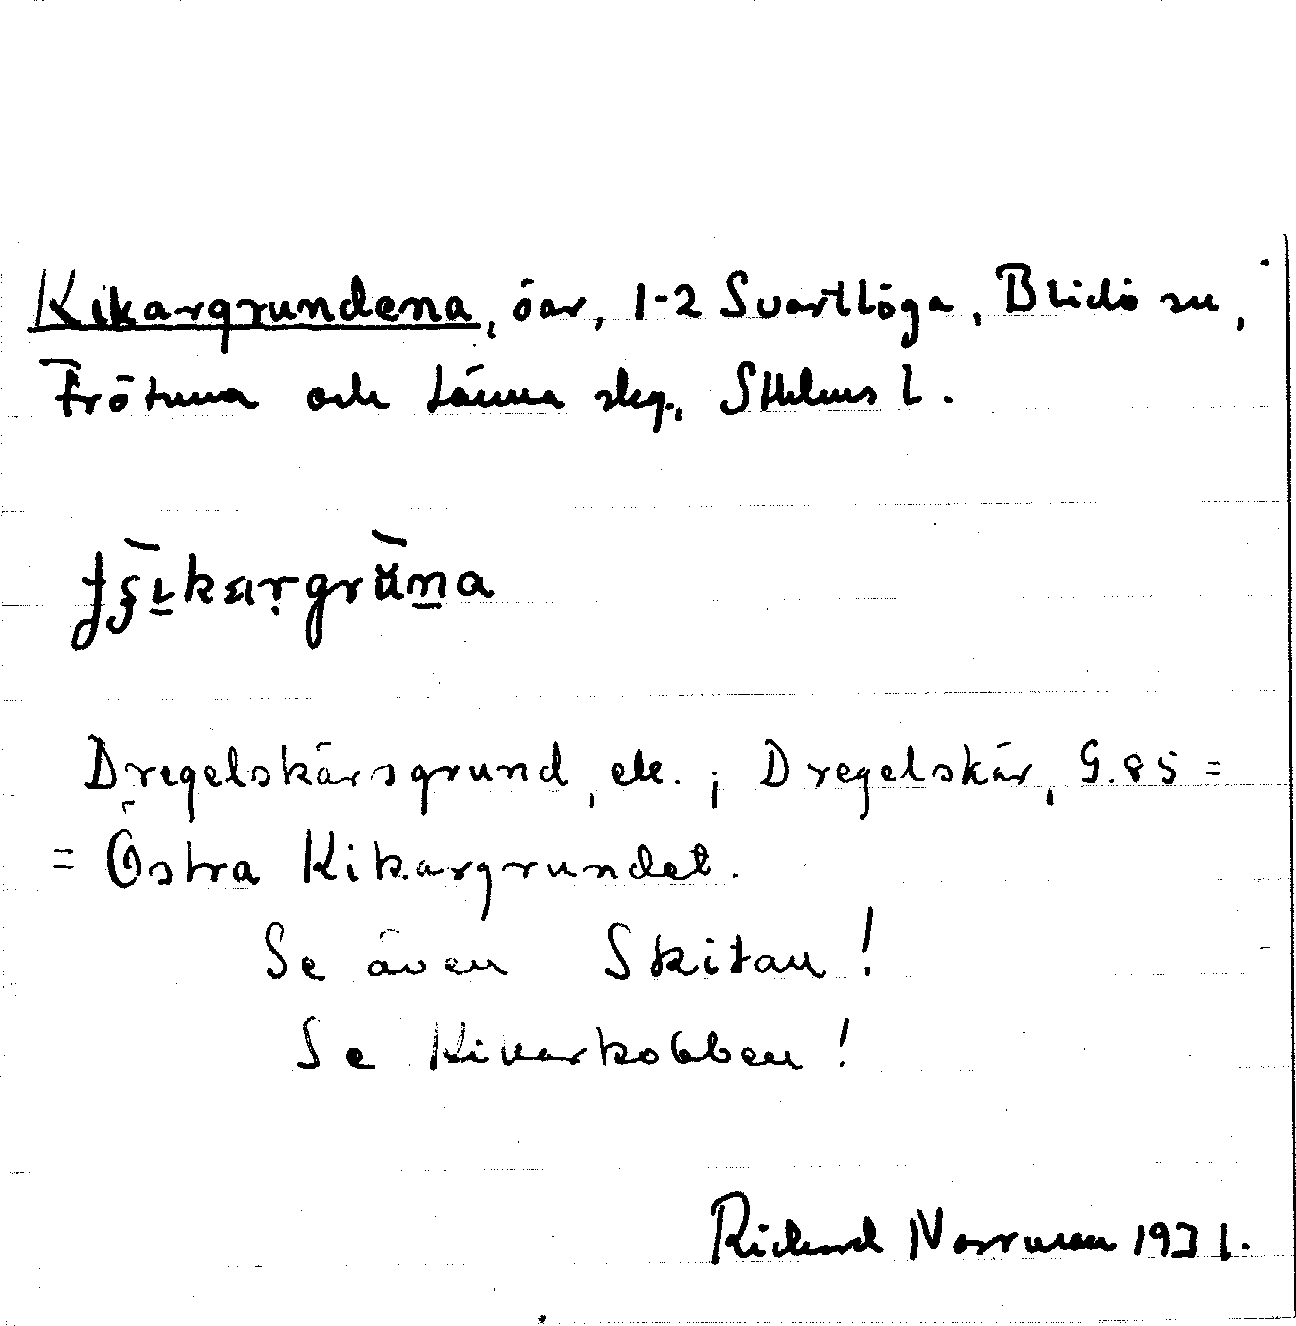 Kikargrundena, öar, 1-2 Svartlöga, Blidö sn,
Frötuna och Länna skg., Sthlms l.
Dregelskärsgrund, ek.; Dregelskär, G.85 =
= Östra Kikargrundet.
Se även Skitan!
Se Kikarkobben!
Richard Norrman 1931.